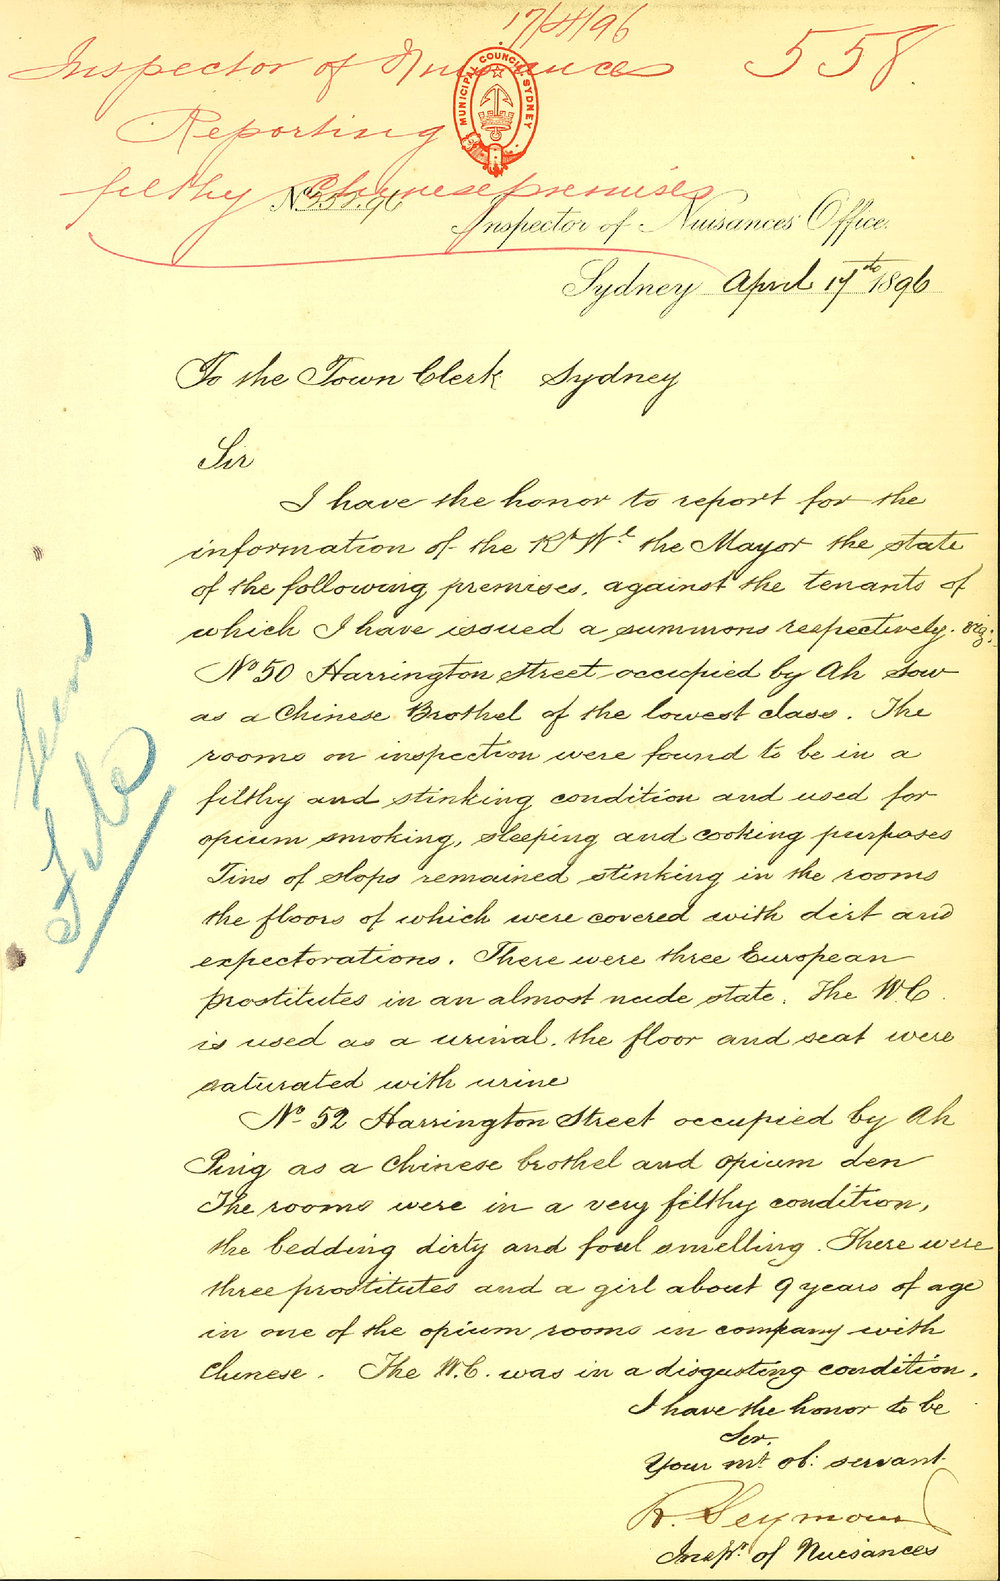 17/4/96
Inspector of Nuisances 558.
Reporting
filthy Chinese premises
MUNICIPAL COUNCIL SYDNEY
No 558.96
Inspector of Nuisances' Office.
Sydney April 17th 1896
To the Town Clerk Sydney
Sir
I have the honor to report for the
information of the Rt Wl the Mayor the state
of the following premises, against the tenants of
which I have issued a summons respectively. viz:
No 50 Harrington Street occupied by Ah Sow
as a Chinese Brothel of the lowest class. The
rooms on inspection were found to be in a
filthy and stinking condition and used for
opium smoking, sleeping and cooking purposes
Tins of slops remained stinking in the rooms
the floors of which were covered with dirt and
expectorations. There were three European
prostitutes in an almost nude state. The W.C.
is used as a urinal. the floor and seat were
saturated with urine
No 52 Harrington Street occupied by Ah
Ping as a Chinese brothel and opium den
The rooms were in a very filthy condition,
the bedding dirty and foul smelling. There were
three prostitutes and a girl about 9 years of age
in one of the opium rooms in company with
Chinese. The W.C. was in a disgusting condition.
I have the honor to be
Sir,
Your mt ob: servant
R. Seymour
Inspr of Nuisances
Seen
File